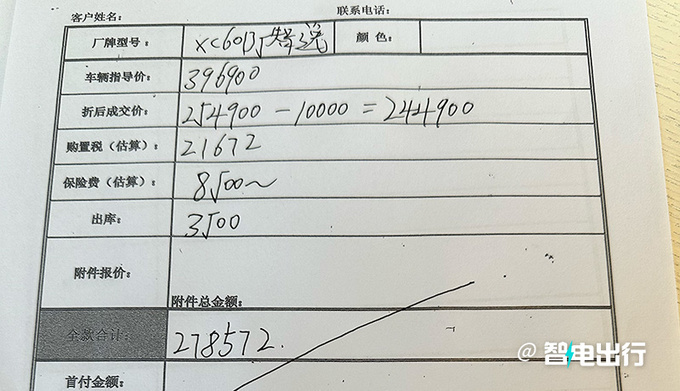 客户姓名： 联系电话：
厂牌型号： XC60B5智逸 颜色：
车辆指导价： 396900
折后成交价： 254900-10000=244900
购置税（估算）： 21672
保险费（估算）： 8500~
出库： 3500
附件报价：
附件总金额：
全款合计： 278572.
首付金额：
@智电出行